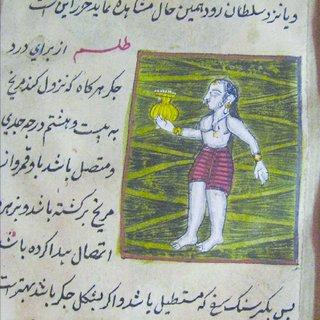 ویا نزد سلطان رود همین حال مشاهده نماید حرز این است
طلسم از برای درد
جگر هرگاه که نزول کند مریخ
به بیست و هشتم درجه جدی
ومتصل باشد باو قمر واز
مریخ برگشته باشد و بزهره
اتصال پیدا کرده باشد
پس بگیر سنگ سرخ که مستطیل باشد واگر بشکل جگر باشد بهتر است